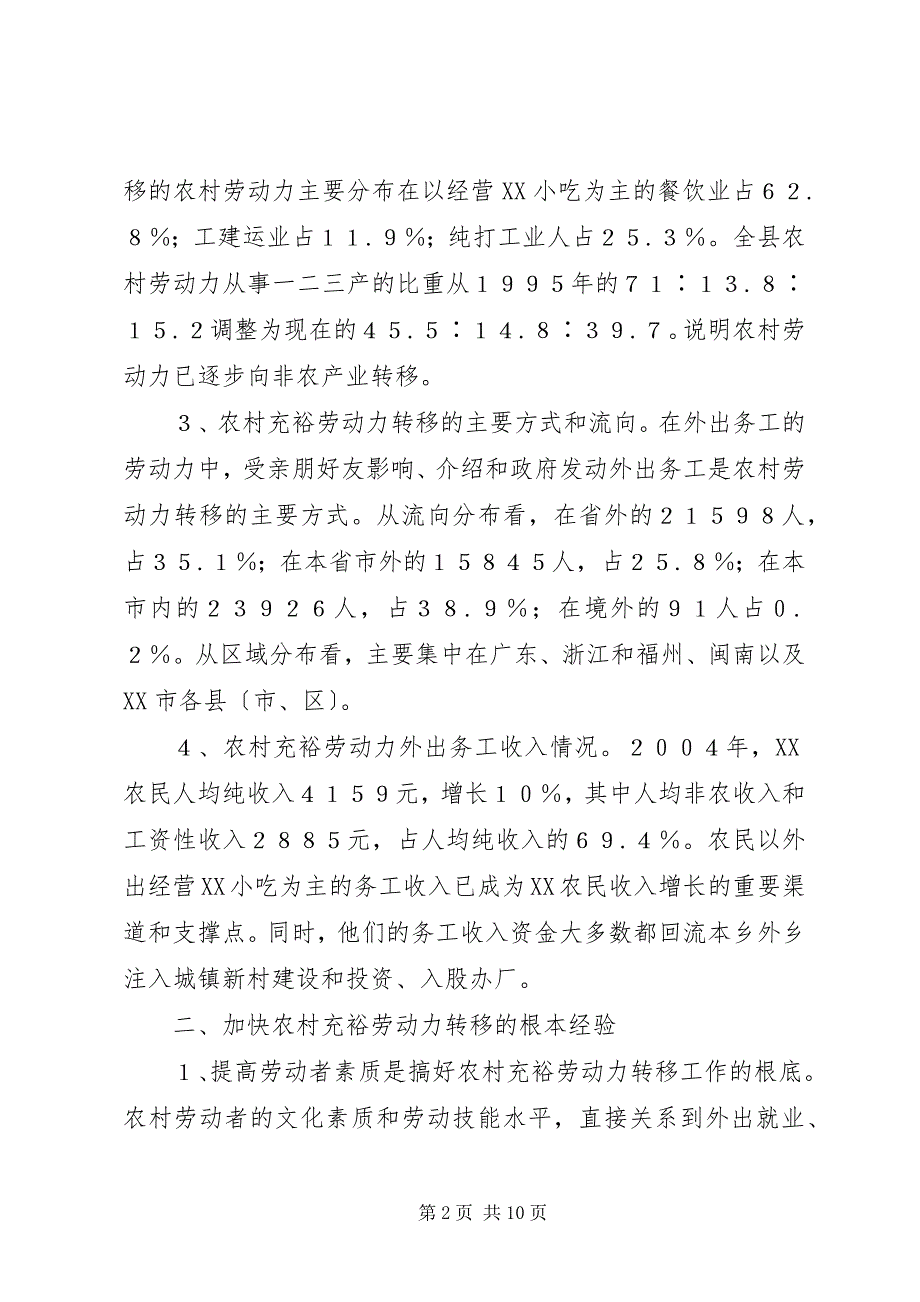 移的农村劳动力主要分布在以经营 XX 小吃为主的餐饮业占６２．
８％；工建运业占１１．９％；纯打工业人占２５．３％。全县农
村劳动力从事一二三产的比重从１９９５年的７１∶１３．８∶
１５．２调整为现在的４５．５∶１４．８∶３９．７。说明农村劳
动力已逐步向非农产业转移。
３、农村充裕劳动力转移的主要方式和流向。在外出务工的
劳动力中，受亲朋好友影响、介绍和政府发动外出务工是农村劳
动力转移的主要方式。从流向分布看，在省外的２１５９８人，
占３５．１％；在本省市外的１５８４５人，占２５．８％；在本
市内的２３９２６人，占３８．９％；在境外的９１人占０．
２％。从区域分布看，主要集中在广东、浙江和福州、闽南以及
XX 市各县〔市、区〕。
４、农村充裕劳动力外出务工收入情况。２００４年，XX
农民人均纯收入４１５９元，增长１０％，其中人均非农收入和
工资性收入２８８５元，占人均纯收入的６９．４％。农民以外
出经营 XX 小吃为主的务工收入已成为 XX 农民收入增长的重要渠
道和支撑点。同时，他们的务工收入资金大多数都回流本乡外乡
注入城镇新村建设和投资、入股办厂。
二、加快农村充裕劳动力转移的根本经验
１、提高劳动者素质是搞好农村充裕劳动力转移工作的根底。
农村劳动者的文化素质和劳动技能水平，直接关系到外出就业、
第 2 页 共 10 页